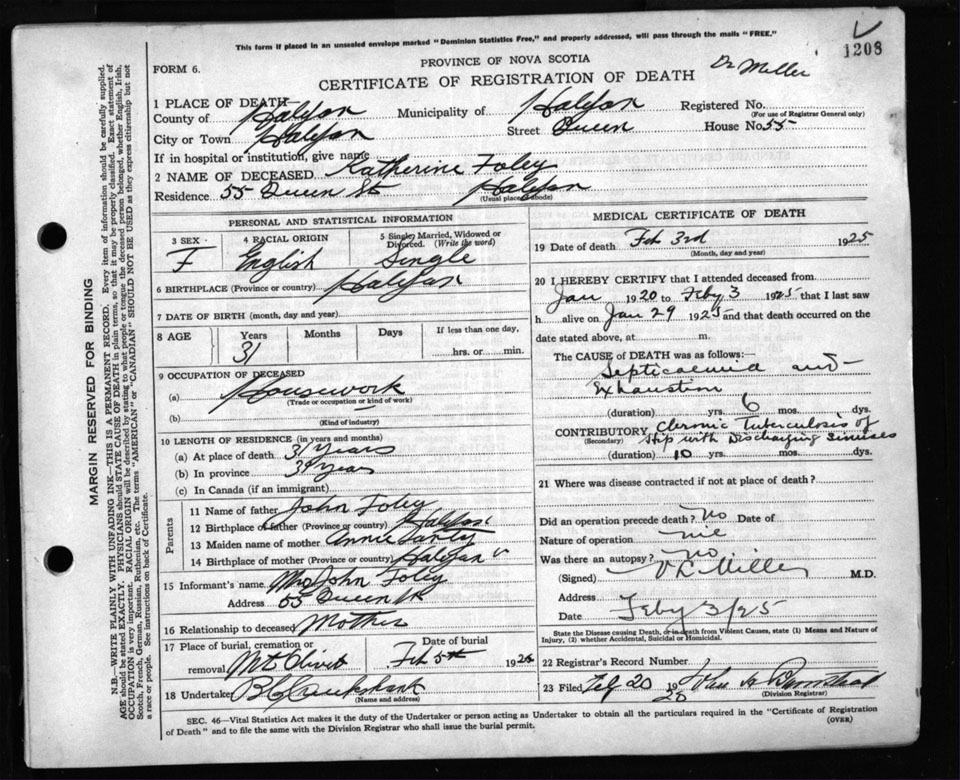 This form if placed in an unsealed envelope marked "Dominion Statistics Free," and properly addressed, will pass through the mails "FREE."
1208
FORM 6.
PROVINCE OF NOVA SCOTIA
CERTIFICATE OF REGISTRATION OF DEATH
Dr Miller
1 PLACE OF DEATH—
County of Halifax Municipality of Halifax Registered No.
(For use of Registrar General only)
City or Town Halifax Street Queen House No 55
If in hospital or institution, give name
2 NAME OF DECEASED Katherine Foley
Residence 55 Queen St Halifax
(Usual place of abode)
PERSONAL AND STATISTICAL INFORMATION
3 SEX F
4 RACIAL ORIGIN English
5 Single, Married, Widowed or Divorced. (Write the word) Single
6 BIRTHPLACE (Province or country) Halifax
7 DATE OF BIRTH (month, day and year)
8 AGE Years Months Days If less than one day,
31 hrs. or min.
9 OCCUPATION OF DECEASED
(a) Housework
(Trade or occupation or kind of work)
(b)
(Kind of industry)
10 LENGTH OF RESIDENCE (in years and months)
(a) At place of death 31 Years
(b) In province 31 Years
(c) In Canada (if an immigrant)
Parents
11 Name of father John Foley
12 Birthplace of father (Province or country) Halifax
13 Maiden name of mother Annie
14 Birthplace of mother (Province or country) Halifax
15 Informant's name Mrs John Foley
Address 55 Queen St
16 Relationship to deceased Mother
17 Place of burial, cremation or removal Mt Olivet Date of burial Feb 5th 1925
18 Undertaker Cruikshank
(Name and address)
MEDICAL CERTIFICATE OF DEATH
19 Date of death Feb 3rd 1925
(Month, day and year)
20 I HEREBY CERTIFY that I attended deceased from
Jan 1920 to Feby 3 1925 that I last saw
h alive on Jan 29 1925 and that death occurred on the
date stated above, at m.
The CAUSE OF DEATH was as follows:—
Septicaemia and
Exhaustion
(duration) yrs. 6 mos. dys.
CONTRIBUTORY Chronic Tuberculosis of
(Secondary) Hip with Discharging Sinuses
(duration) 10 yrs. mos. dys.
21 Where was disease contracted if not at place of death?
Did an operation precede death? no Date of
Nature of operation nil
Was there an autopsy? no
(Signed) Miller M.D.
Address
Date Feby 3/25
State the Disease causing Death, or in death from Violent Causes, state (1) Means and Nature of
Injury, (2) whether Accidental, Suicidal or Homicidal.
22 Registrar's Record Number
23 Filed Feb 20 19 John
(Division Registrar)
SEC. 46—Vital Statistics Act makes it the duty of the Undertaker or person acting as Undertaker to obtain all the particulars required in the "Certificate of Registration
of Death" and to file the same with the Division Registrar who shall issue the burial permit.
(OVER)
MARGIN RESERVED FOR BINDING
N.B.—WRITE PLAINLY WITH UNFADING INK—THIS IS A PERMANENT RECORD. Every item of information should be carefully supplied.
AGE should be stated EXACTLY. PHYSICIANS should STATE CAUSE OF DEATH in plain terms, so that it may be properly classified. Exact statement of
OCCUPATION is very important. RACIAL ORIGIN will be described by stating to what people or tongue the deceased person belonged, whether English, Irish,
Scotch, French, German, Russian, Ruthenian, etc. The terms "AMERICAN" or "CANADIAN" SHOULD NOT BE USED as they express citizenship but not
a race or people. See instructions on back of Certificate.